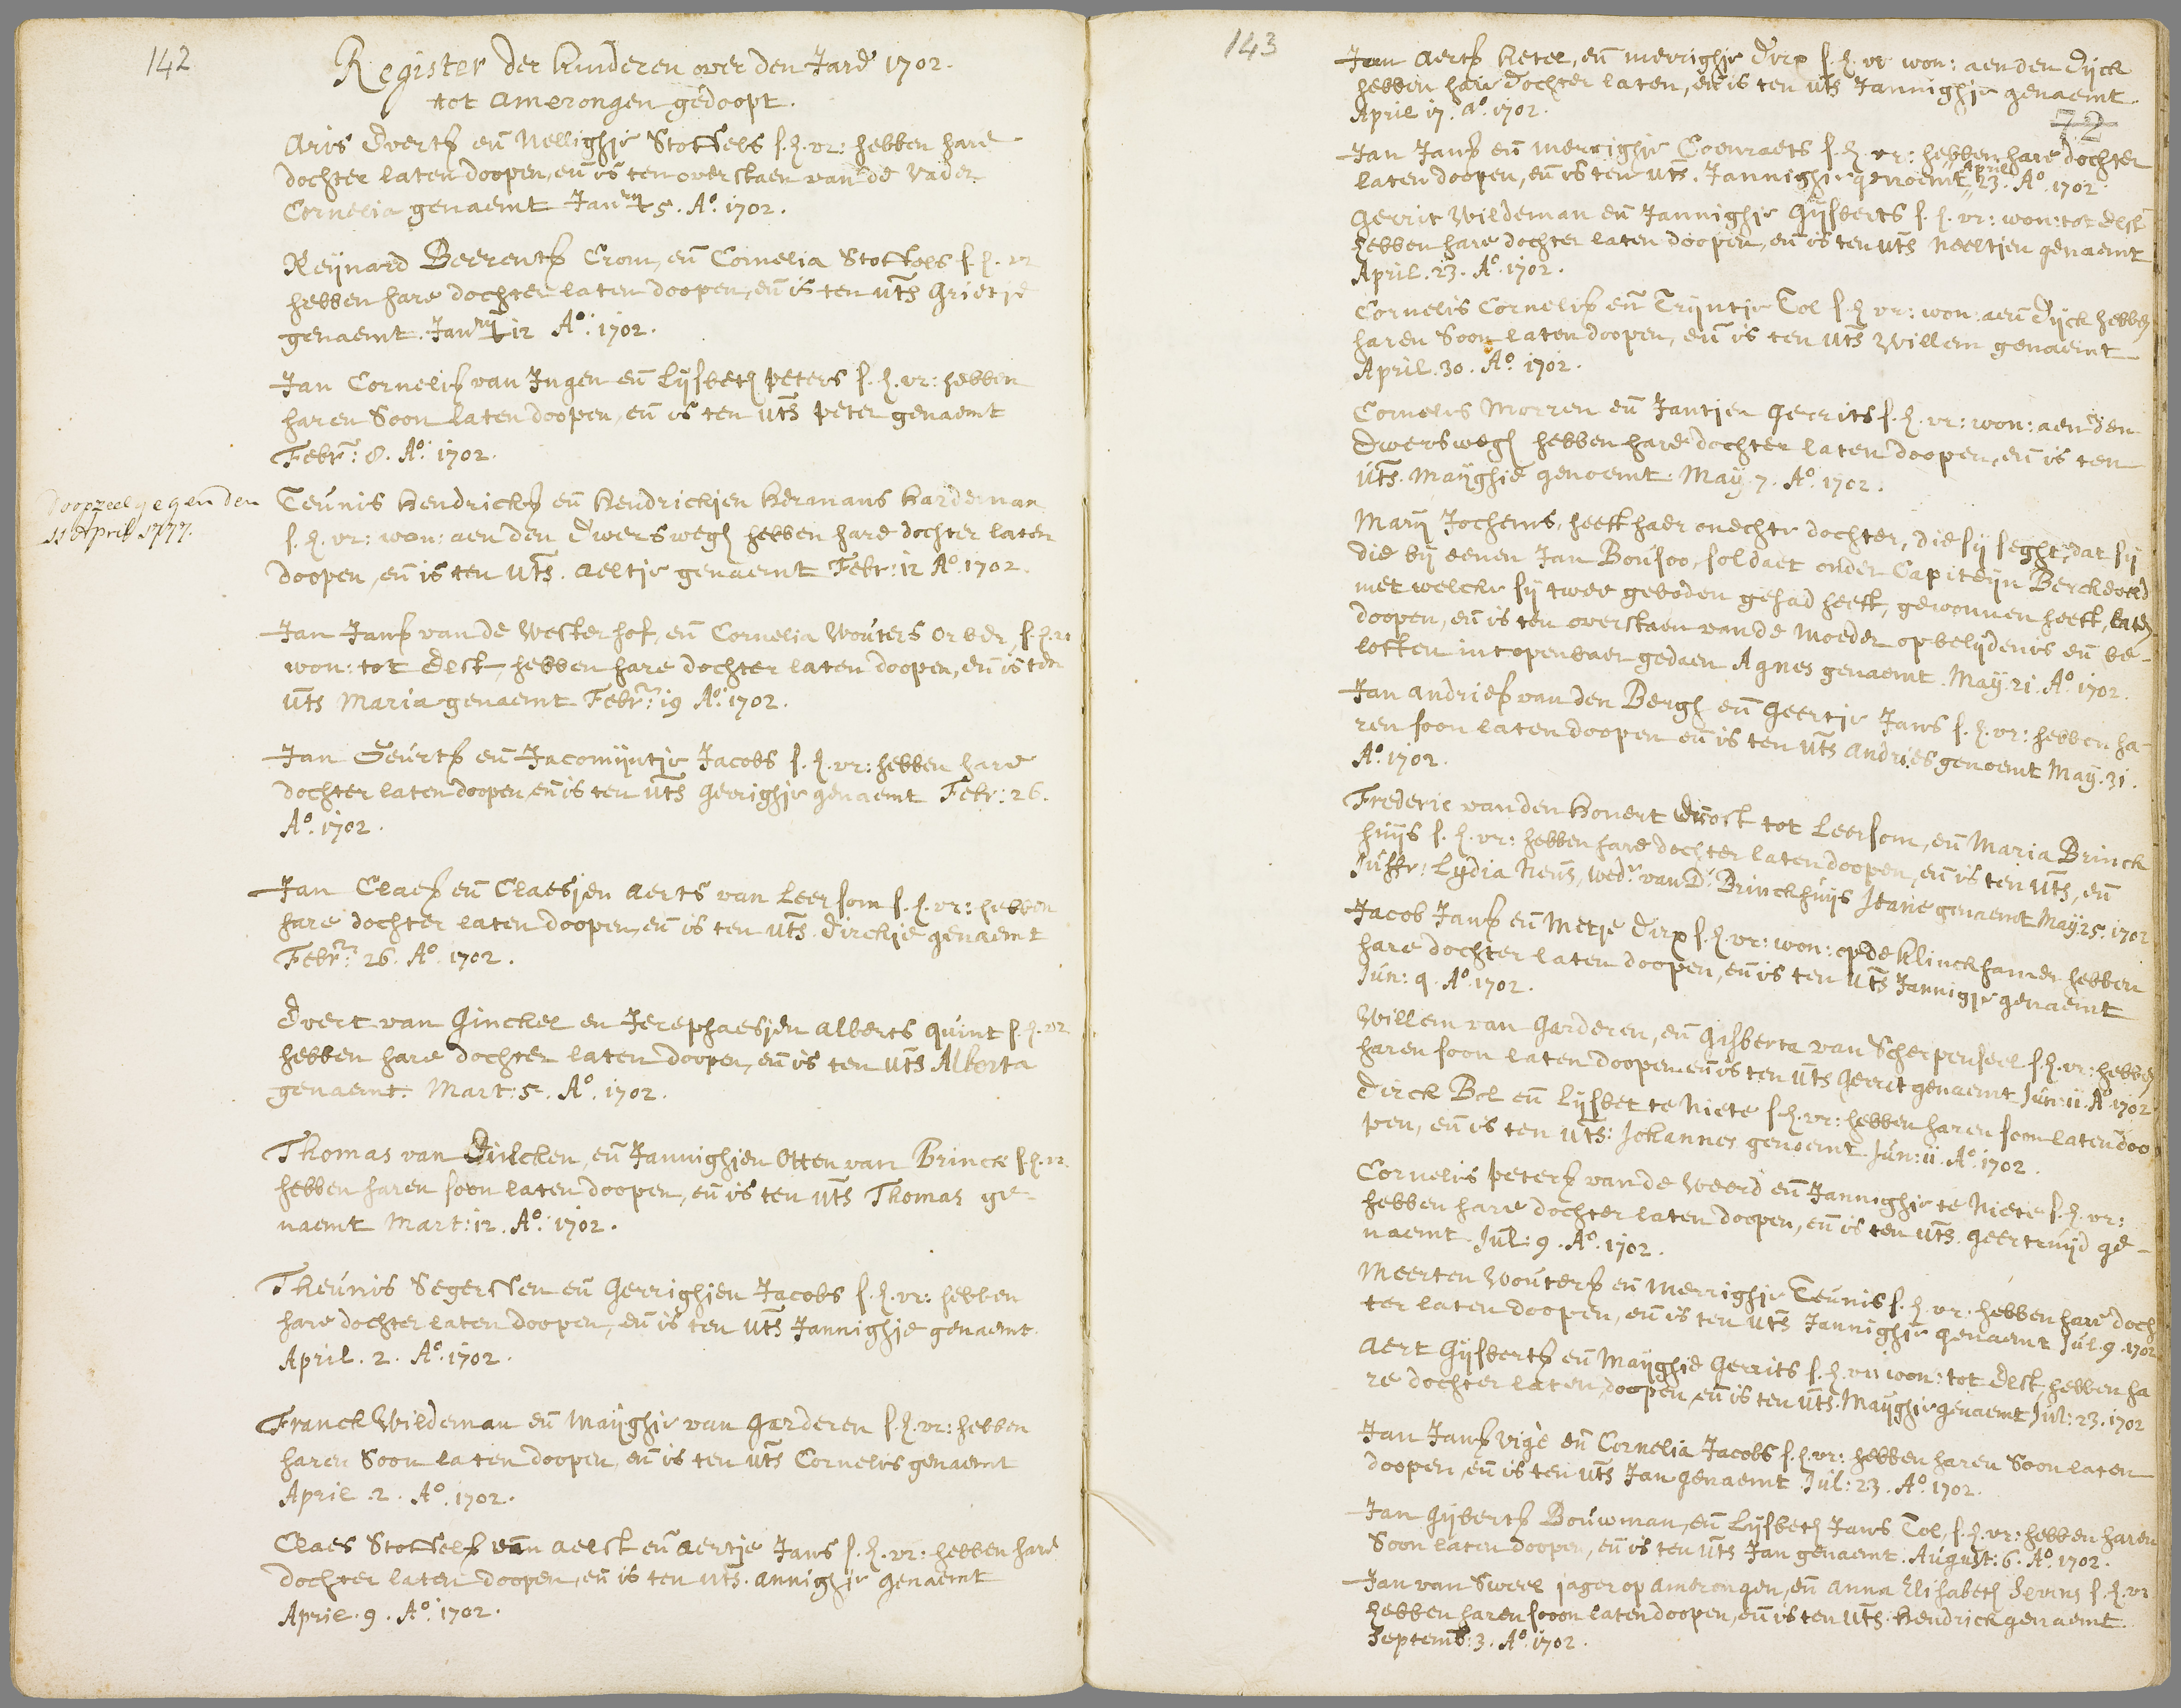 142
Register der kinderen over den Jare 1702.
tot Amerongen gedoopt.
Aris Everts en Nellighje Stoffels s. h. vr: hebben hare
dochter laten doopen, en is ten overstaen van de vader
Cornelia genaemt Janry 5. Ao. 1702.
Reijnard Beerents Crom, en Cornelia Stoffels s. h. vr
hebben hare dochter laten doopen, en is ten uts Grietje
genaemt. Janry 12 Ao. 1702.
Jan Cornelis van Ingen en Lijsbeth Peters s. h. vr: hebben
haren Soon laten doopen, en is ten uts Peter genaemt
Febr: 8. Ao. 1702.
doopzeel gegenden
11 April 1777.
Teunis Hendricks en Hendrickjen Hermans Hardeman
s. h. vr: won: aen den Dwerswegh hebben hare dochter laten
doopen, en is ten uts. Aeltje genaemt Febr: 12 Ao. 1702.
Jan Jans van de Westerhof, en Cornelia Wouters Orber, s. h. vr
won: tot Elst, hebben hare dochter laten doopen, en is ten
uts Maria genaemt Febr: 19 Ao. 1702.
Jan Geurts en Jacomijntje Jacobs s. h. vr: hebben hare
dochter laten doopen, en is ten uts Gerrighje genaemt Febr: 26.
Ao. 1702.
Jan Claes en Claesjen Aerts van Leersom s. h. vr: hebben
hare dochter laten doopen, en is ten uts. Dirckje genaemt
Febr: 26. Ao. 1702.
Evert van Ginckel en Jerephaesjen Alberts Quint s. h. vr
hebben hare dochter laten doopen, en is ten uts Alberta
genaemt. Mart: 5. Ao. 1702.
Thomas van Dulcken, en Jannighjen Otten van Brinck s. h. vr.
hebben haren soon laten doopen, en is ten uts Thomas ge-
naemt Mart: 12. Ao. 1702.
Theunis Segersten en Gerrighjen Jacobs s. h. vr: hebben
hare dochter laten doopen, en is ten uts Jannighje genaemt.
April. 2. Ao. 1702.
Franck Wildeman en Maijghje van Garderen s. h. vr: hebben
haren Soon laten doopen, en is ten uts Cornelis genaemt
April. 2. Ao. 1702.
Claes Stoffels van Aelst en Aertje Jans s. h. vr: hebben hare
dochter laten doopen, en is ten uts. Annighje genaemt
April. 9. Ao. 1702.
143
Jan Aerts Ketel, en Merrighje Dirx s. h. vr won: aen den Dijck
hebben hare dochter laten, en is ten uts Jannighje genaemt.
April 17. Ao. 1702.
72
Jan Jans en Merrighje Coenraets s. h. vr: hebben hare dochter
laten doopen, en is ten uts. Jannighje genoemt April 23. Ao. 1702.
Gerrit Wildeman en Jannighje Gijsberts s. h. vr: won: tot Elst
hebben hare dochter laten doopen, en is ten uts Neeltjen genaemt
April. 23. Ao. 1702.
Cornelis Cornelis en Trijntje Tol s. h. vr: won: aen Dijck hebben
haren Soon laten doopen, en is ten uts Willem genaemt
April. 30. Ao. 1702.
Cornelis Morren en Jantjen Gerrits s. h. vr: won: aen den
Dwerswegh hebben hare dochter laten doopen, en is ten
uts. Maijghje genoemt. May. 7. Ao. 1702.
Marij Jochems, heeft haer onechte dochter, die sij seght, dat sij
die bij eenen Jan Bousoo, soldaet onder Capiteijn Berckevelt
met welcke sij twee geboden gehad heeft, gewonnen heeft, laten
doopen, en is ten overstaen van de Moeder op belijdenis en be-
loften int openbaer gedaen Agnes genaemt. May. 21. Ao. 1702.
Jan Andries van den Bergh en Geertje Jans s. h. vr: hebben ha-
ren soon laten doopen en is ten uts Andries genoemt May. 31.
Ao. 1702.
Frederic van den Honert Drost tot Leersom, en Maria Brinck
huijs s. h. vr: hebben hare dochter laten doopen, en is ten uts, en
Juffr: Lydia Neus, wed. van D. Brinckhuijs Jeane genaemt May 25. 1702
Jacob Jans en Metje Dirx s. h. vr: won: op de Klinckhamer hebben
hare dochter laten doopen, en is ten uts Jannigje genaemt
Jun: 9. Ao. 1702.
Willem van Garderen, en Gisberta van Scherpenseel s. h. vr: hebben
haren soon laten doopen en is ten uts Gerrit genaemt Jun: 11. Ao. 1702
Dirck Bol en Lijsbet te Niete s. h. vr: hebben haren soon laten doo
pen, en is ten uts: Johannes genoemt. Jun: 11. Ao. 1702.
Cornelis Peters van de Weerd en Jannighje te Niete s. h. vr:
hebben hare dochter laten doopen, en is ten uts. Geertruijd ge-
naemt. Jul: 9. Ao. 1702.
Meerten Wouters en Merrighje Teunis s. h. vr. hebben hare doch
ter laten doopen, en is ten uts Jannighje genaemt Jul. 9. 1702
Aert Gijsberts en Maijghje Gerrits s. h. vr: won: tot Elst, hebben ha
re dochter laten doopen, en is ten uts. Maijghje genaemt Jul: 23. 1702
Jan Jans Vige en Cornelia Jacobs s. h. vr: hebben haren Soon laten
doopen, en is ten uts Jan genaemt Jul: 23. Ao. 1702.
Jan Gijberts Bouwman, en Lijsbeth Jans Tol, s. h. vr: hebben haren
Soon laten doopen, en is ten uts Jan genaemt. August: 6. Ao. 1702.
Jan van Sweel jager op Amerongen, en Anna Elisabeth Sevens s. h. vr
hebben haren sooon laten doopen, en is ten uts. Hendrick genaemt.
Septemb: 3. Ao. 1702.